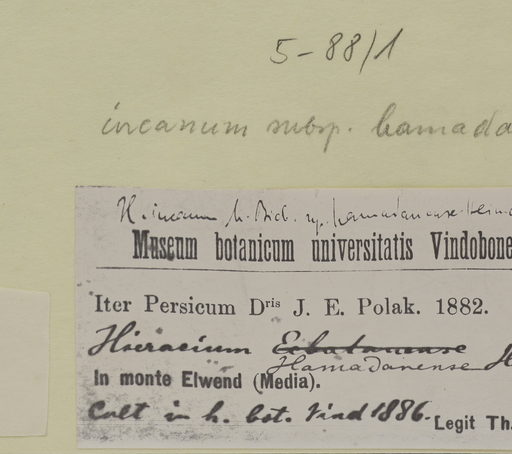 5-88/1
incanum subsp. hamada
H. incanum M. Bieb. sp. hamadanense
Museum botanicum universitatis Vindobone
Iter Persicum Dris J. E. Polak. 1882.
Hieracium Ecbatanense H
Hamadanense
In monte Elwend (Media).
Cult in h. bot. Vind 1886.
Legit Th.